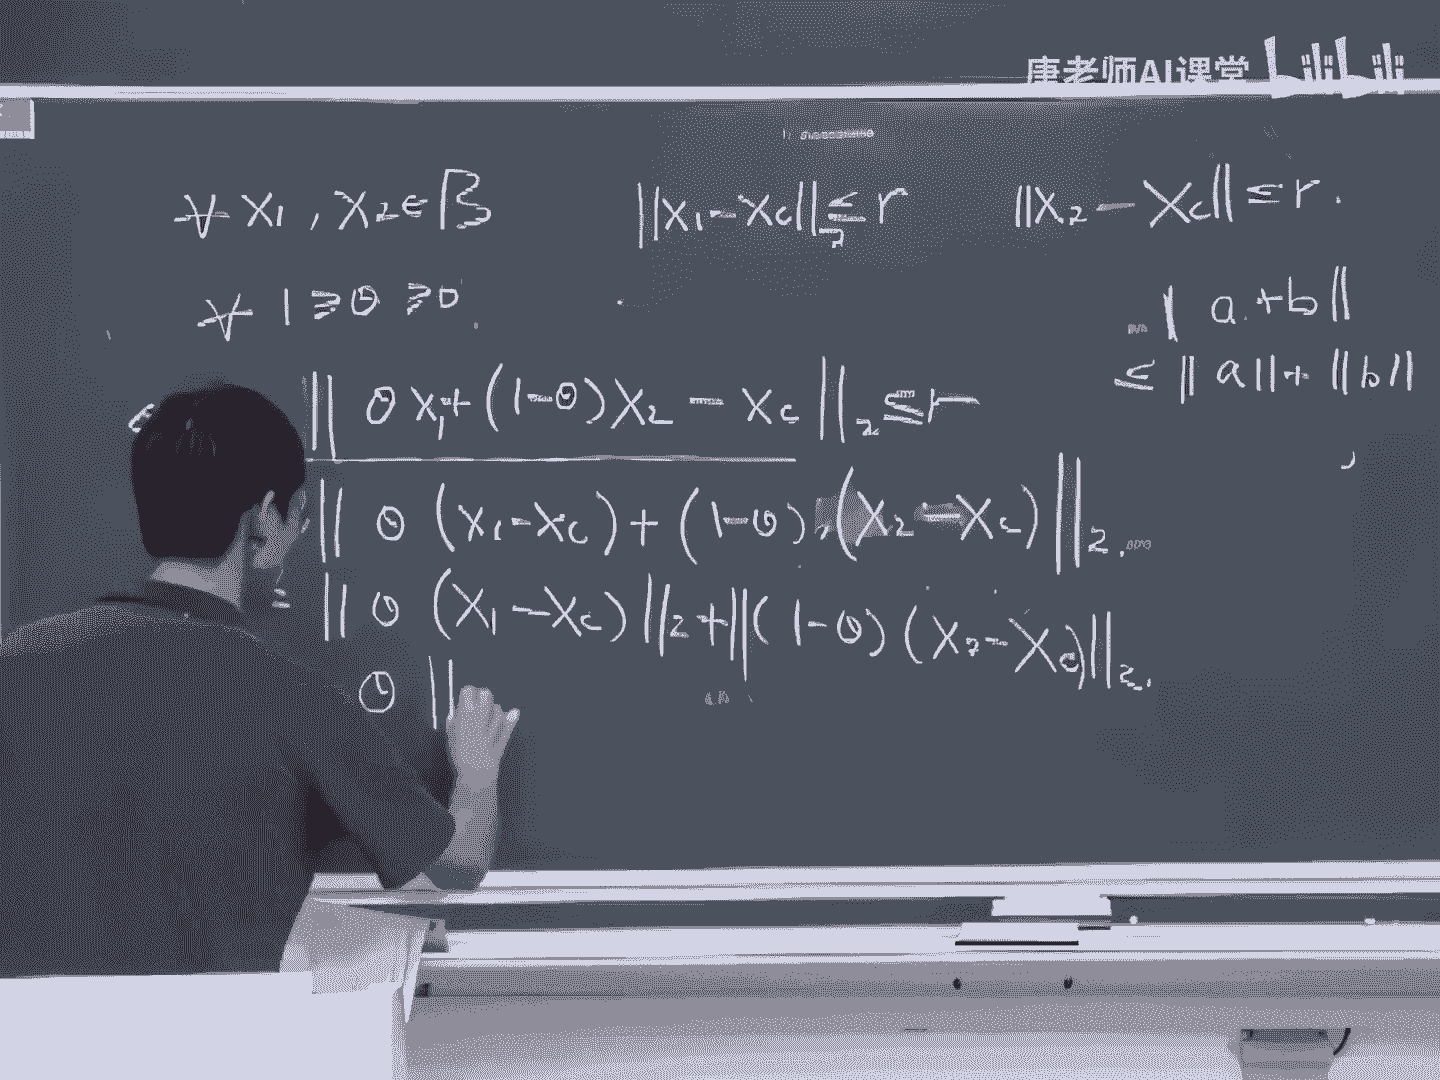 唐老师AI课堂 bilibili
∀ X₁ , X₂ ∈ B ||X₁ - Xc||₂ ≤ r ||X₂ - Xc|| ≤ r .
∀ 1 ≥ θ ≥ 0
|| a + b ||
≤ || a || + || b ||
|| θ X₁ + (1-θ) X₂ - Xc ||₂ ≤ r
|| θ (X₁ - Xc) + (1-θ) (X₂ - Xc) ||₂ .
|| θ (X₁ - Xc) ||₂ + || (1-θ) (X₂ - Xc) ||₂ .
θ ||